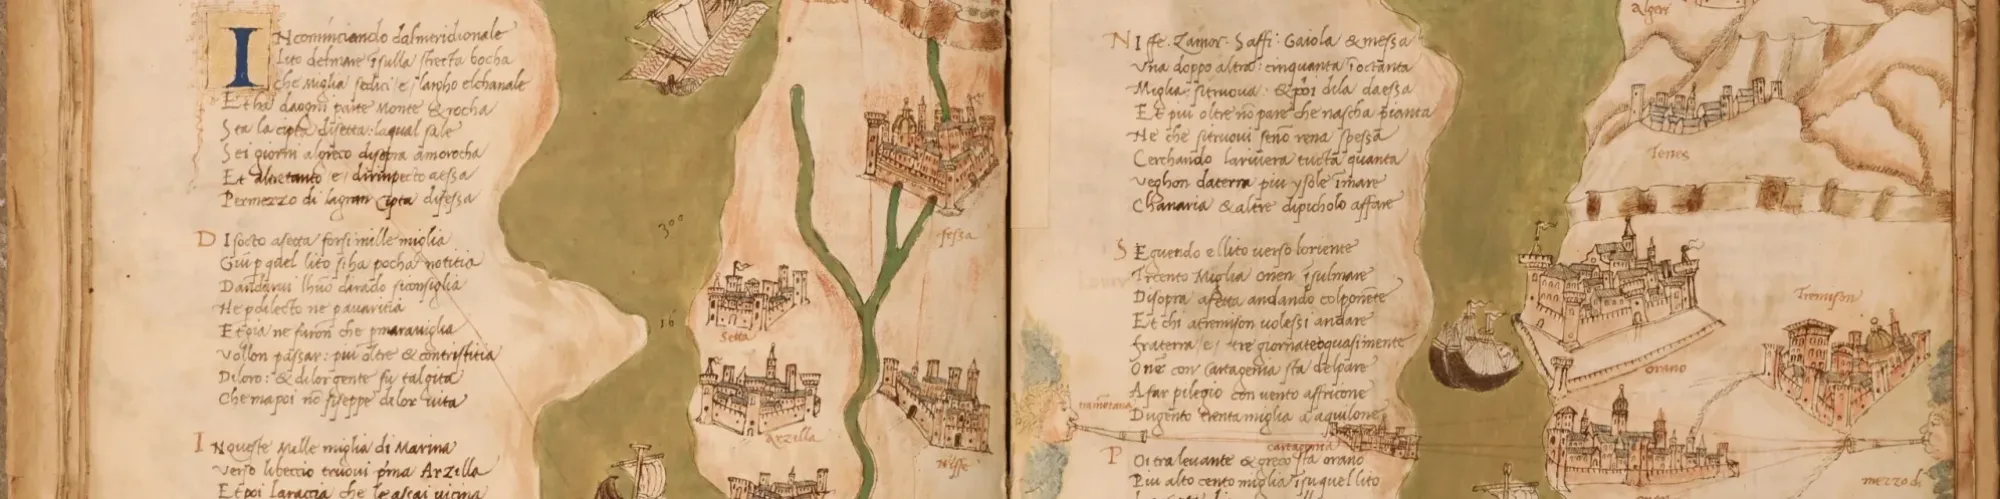 INcominciando dal meridionale
lito del mare i sulla strecta bocha
che miglia sedici e largho el chanale
Et ha daogni parte Monte & rocha
Sta la cipta disetta: laqual sale
Sei giorni algreco disopra amorocha
Et altretanto e dirimpecto aessa
Permezzo di lagran cipta difessa
DIsocto asecta forsi mille miglia
del lito si ha pocha notitia
Et gia ne furon che pmaraviglia
vollon passar: piu oltre & con tristitia
Diloro: & dilor gente fu
Che mapoi nō di lor vita
INqueste Mille miglia di Marina
verso libeccio truovi pma Arzilla
Et poi laraccia che le assai vicina
300
16
fessa
Setta
Arzilla
Niffe
NIffe. Zamor. Saffi. Gaiola & messa
Una doppo altra: cinquanta i octanta
Miglia sitruova: & poi dila daessa
Et piu oltre nō pare che nascha pianta
Ne che sitruovi senō rena spessa
Cerchando larivera tucta quanta
veghon daterra piu ysole imare
Chanaria & altre dipicholo affare
SEguendo ellito verso loriente
Trecento Miglia
Disopra asetta andando colponēte
Et chi atremison volessi andare
fraterra e tre giornate o quasimente
con Cartagenia sta delpare
Afar pileggio con vento affricone
Dugento trenta miglia a aquilone
POi tra levante & greco sta orano
Piu alto cento miglia i su quel lito
Alger
Tenes
Tremison
orano
tramontana
cartagenia
mezzo di